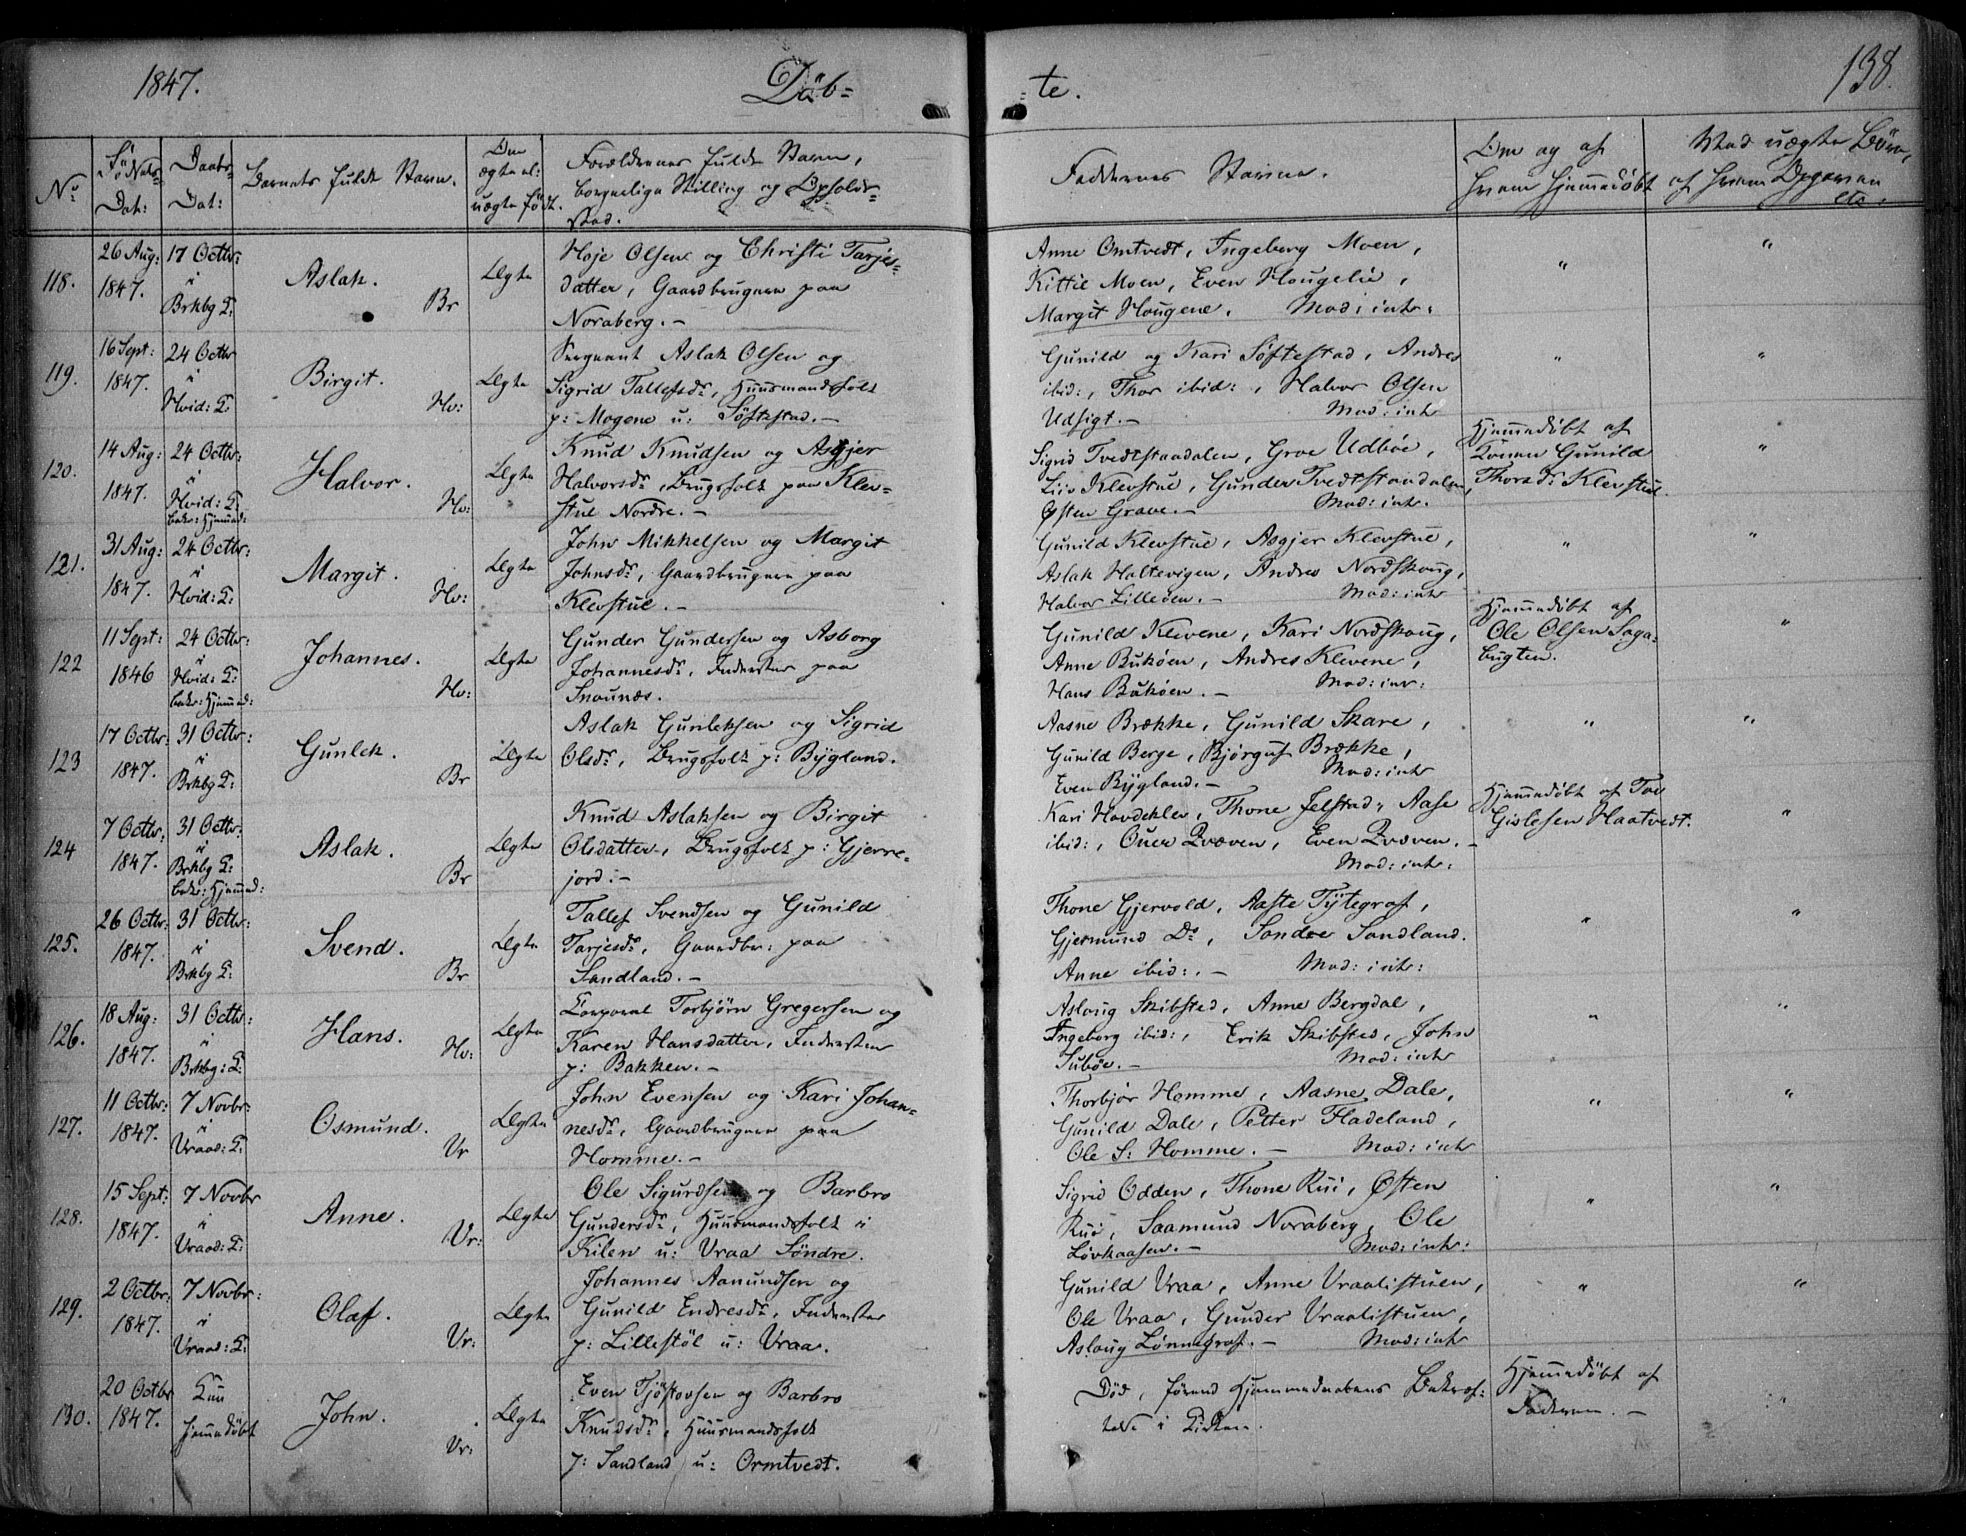 1847. Döb= te. 138.
No
Födsels Dat:
Daabs Dat:
Barnets fulde Navn.
Om ægte el: uægte født.
Forældrenes fulde Navn, borgerlige Stilling og Opholds= sted.
Faddernes Navne.
Om og af hvem hjemmedøbt
Ved uægte Børn, af hvem Angivne etc.
118. 26 Aug: 1847. 17 Octbr: i Brkbg K: Aslak. Br Ægte
Hoje Olsen og Christi Tarjes=
datter, Gaardbrugere paa
Noraberg. –
Anne Omtvedt, Ingeborg Moen,
Kittil Moen, Even Hougelie,
Margit Hougene. Mod: intr: " "
119. 16 Sept: 1847. 24 Octbr i Hvid: K: Birgit. Hv: Ægte
Sergeant Aslak Olsen og
Sigrid Tallefsdr, Huusmandsfolk
p: Mogene u: Söftestad. –
Gunild og Kari Söftestad, Andres
ibid:, Thor ibid:, Halvor Olsen
Udsigt. – Mod: intr " "
120. 14 Aug: 1847. 24 Octbr: i Hvid: K. bekr: Hjemmed: Halvor. Hv: Ægte
Knud Knudsen og Asgjer
Halvorsdr, Brugsfolk paa Klev=
stue Nordre. –
Sigrid Tvedtstaadalen, Groe Udböe,
Liv Klevstue, Gunder Tvedtstaadalen,
Østen Grave. – Mod: intr.
Hjemmedöbt af
Konen Gunild
Thorsdr Klevstue. "
121. 31 Aug: 1847. 24 Octbr: i Hvid: K: Margit. Hv: Ægte
John Mikkelsen og Margit
Johnsdr, Gaardbrugere paa
Klevstue. –
Gunild Klevstue, Asgjer Klevstue,
Aslak Haltevigen, Andres Nordskoug,
Halvor Lilleöen. – Mod: intr " "
122 11 Sept: 1846 24 Octbr: i Hvid: K: bekr: Hjemmed: Johannes. Hv: Ægte
Gunder Gundersen og Asborg
Johannesdr, Inderster paa
Snaunæs.
Gunild Klevene, Kari Nordskoug,
Anne Buköen, Andres Klevene,
Hans Buköen. – Mod: inr:
Hjemmedöbt af
Ole Olsen Saga=
bugten. "
123 17 Octbr: 1847. 31 Octbr: i Brkbg K: Gunlek. Br Ægte
Aslak Gunleksen og Sigrid
Olsdr, Brugsfolk p: Bÿgland.
Aasne Brække, Gunild Skare,
Gunild Berge, Bjørguf Brække,
Even Bÿgland. – Mod: intr " "
124 7 Octbr: 1847. 31 Octbr: i Brkbg K: bekr: Hjemmed: Aslak. Br Ægte
Knud Aslaksen og Birgit
Olsdatter, Brugsfolk p: Gjerre=
jord. –
Kari Havdeklev, Thone Jelstad, Aase
ibid:, Ouer Qvæven, Even Qvæven. –
Mod: intr:
Hjemmedöbt af Tov
Gislesen Haatvedt. "
125. 26 Octbr: 1847. 31 Octbr: i Brkbg K: Svend. Br Ægte
Tallef Svendsen og Gunild
Tarjesdr, Gaardbr: paa
Sandland. –
Thone Gjervold, Aaste Tÿtegraf,
Gjermund Do, Sondre Sandland.
Anne ibid:. – Mod: intr: " "
126. 18 Aug: 1847. 31 Octbr: i Brkbg: K: Hans. Hv: Ægte
Corporal Torbjörn Gregersen og
Karen Hansdatter, Inderster
p: Bakken. –
Aslaug Skibsted, Anne Bergdal,
Ingeborg ibid:, Erik Skibsted, John
Suböe. – Mod: intr " "
127. 11 Octbr: 1847. 7 Novbr: i Vraad: K: Osmund. Vr Ægte
John Evensen og Kari Johan=
nesdr, Gaardbrugere paa
Homme. –
Thorbjør Homme, Aasne Dale,
Gunild Dale, Petter Fladeland,
Ole S: Homme. – Mod: intr " "
128. 15 Sept: 1847. 7 Novbr i Vraad: K: Anne. Vr: Ægte
Ole Sigurdsen og Barbro
Gundersdr, Huusmandsfolk i
Kilen u: Vraa Söndre.
Sigrid Odden, Thone Rui, Østen
Rui, Saamund Noraberg, Ole
Lövkaasen. – Mod: intr: " "
129. 2 Octbr: 1847. 7 Novbr: i Vraad: K: Olaf. Vr: Ægte
Johannes Aanundsen og
Gunild Endresdr, Inderster
p: Lillestöl u: Vraa.
Gunild Vraa, Anne Vraalistuen,
Ole Vraa, Gunder Vraalistuen,
Aslaug Lönnegraf. – Mod: intr " "
130. 20 Octbr 1847. Kun hjemmedöbt John. Vr: Ægte
Even Tjöstovsen og Barbro
Knudsdr, Huusmandsfolk
p: Sandland u: Omtvedt.
Död, förend Hjemmedaabens Bekræf=
telse i Kirken.
Hjemmedöbt af
Faderen. – "